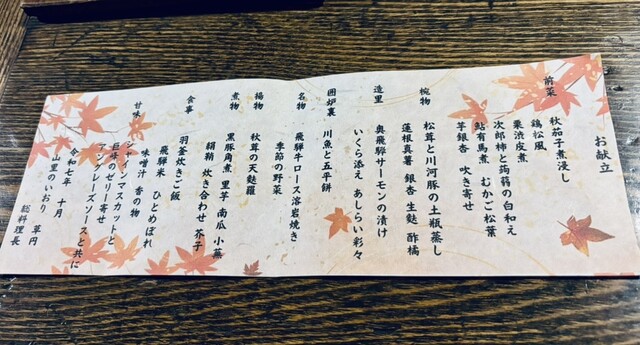 お献立
前菜
秋茄子煮浸し
鶏松風
栗渋皮煮
次郎柿と蒟蒻の白和え
鮎有馬煮 むかご松葉
芋銀杏 吹き寄せ
椀物
松茸と川河豚の土瓶蒸し
蓮根真薯 銀杏 生麩 酢橘
造里
奥飛騨サーモンの漬け
いくら添え あしらい彩々
囲炉裏
川魚と五平餅
名物
飛騨牛ロース溶岩焼き
季節の野菜
揚物
秋茸の天麩羅
煮物
黒豚角煮 里芋 南瓜 小蕪
絹鞘 炊き合わせ 芥子
食事
羽釜炊きご飯
飛騨米 ひとめぼれ
味噌汁 香の物
甘味
シャインマスカットと
巨峰のゼリー寄せ
アングレーズソースと共に
令和七年 十月
山里のいおり 草円
総料理長